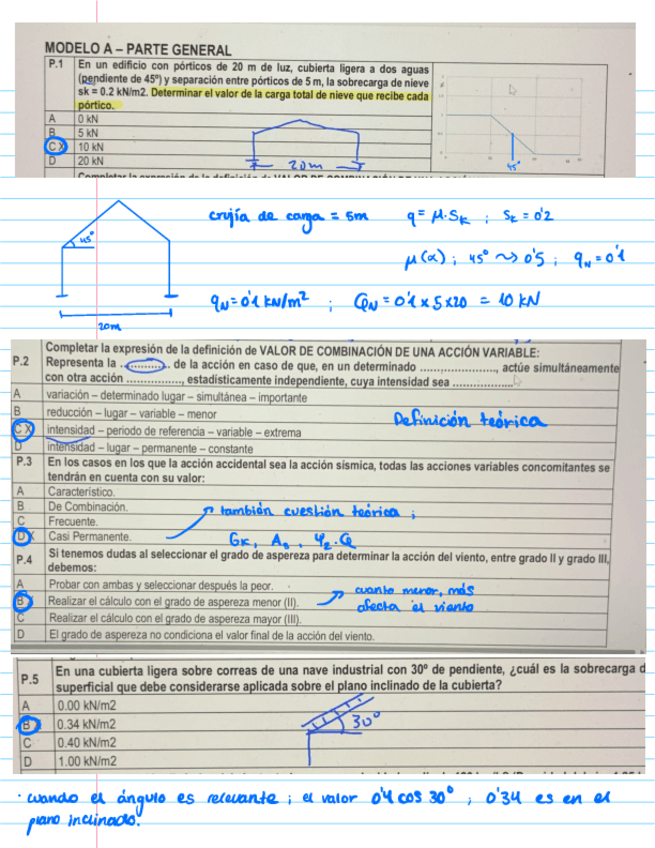 MODELO A – PARTE GENERAL
P.1 En un edificio con pórticos de 20 m de luz, cubierta ligera a dos aguas
(pendiente de 45º) y separación entre pórticos de 5 m, la sobrecarga de nieve
sk = 0.2 kN/m2. Determinar el valor de la carga total de nieve que recibe cada
pórtico.
A 0 kN
B 5 kN
C X 10 kN
D 20 kN
20m
45°
crujía de carga = 5m q = μ·Sk ; Sk = 0'2
45°
μ(α) ; 45° ~> 0'5 ; qN = 0'1
qN = 0'1 kN/m² ; QN = 0'1 x 5 x 20 = 10 KN
20m
Completar la expresión de la definición de VALOR DE COMBINACIÓN DE UNA ACCIÓN VARIABLE:
P.2 Representa la .............. de la acción en caso de que, en un determinado ......................, actúe simultáneamente
con otra acción ................, estadísticamente independiente, cuya intensidad sea ..................
A variación – determinado lugar – simultánea – importante
B reducción – lugar – variable – menor
Definición teórica
C X intensidad – periodo de referencia – variable – extrema
D intensidad – lugar – permanente – constante
P.3 En los casos en los que la acción accidental sea la acción sísmica, todas las acciones variables concomitantes se
tendrán en cuenta con su valor:
A Característico.
B De Combinación.
también cuestión teórica ;
C Frecuente.
D X Casi Permanente.
GK, A , Ψ2·Q
P.4 Si tenemos dudas al seleccionar el grado de aspereza para determinar la acción del viento, entre grado II y grado III,
debemos:
A Probar con ambas y seleccionar después la peor.
cuanto menor, más
B X Realizar el cálculo con el grado de aspereza menor (II).
afecta el viento
C Realizar el cálculo con el grado de aspereza mayor (III).
D El grado de aspereza no condiciona el valor final de la acción del viento.
P.5 En una cubierta ligera sobre correas de una nave industrial con 30º de pendiente, ¿cuál es la sobrecarga d
superficial que debe considerarse aplicada sobre el plano inclinado de la cubierta?
A 0.00 kN/m2
B 0.34 kN/m2
30°
C 0.40 kN/m2
D 1.00 kN/m2
· cuando el ángulo es relevante ; el valor 0'4 cos 30° ; 0'34 es en el
plano inclinado.